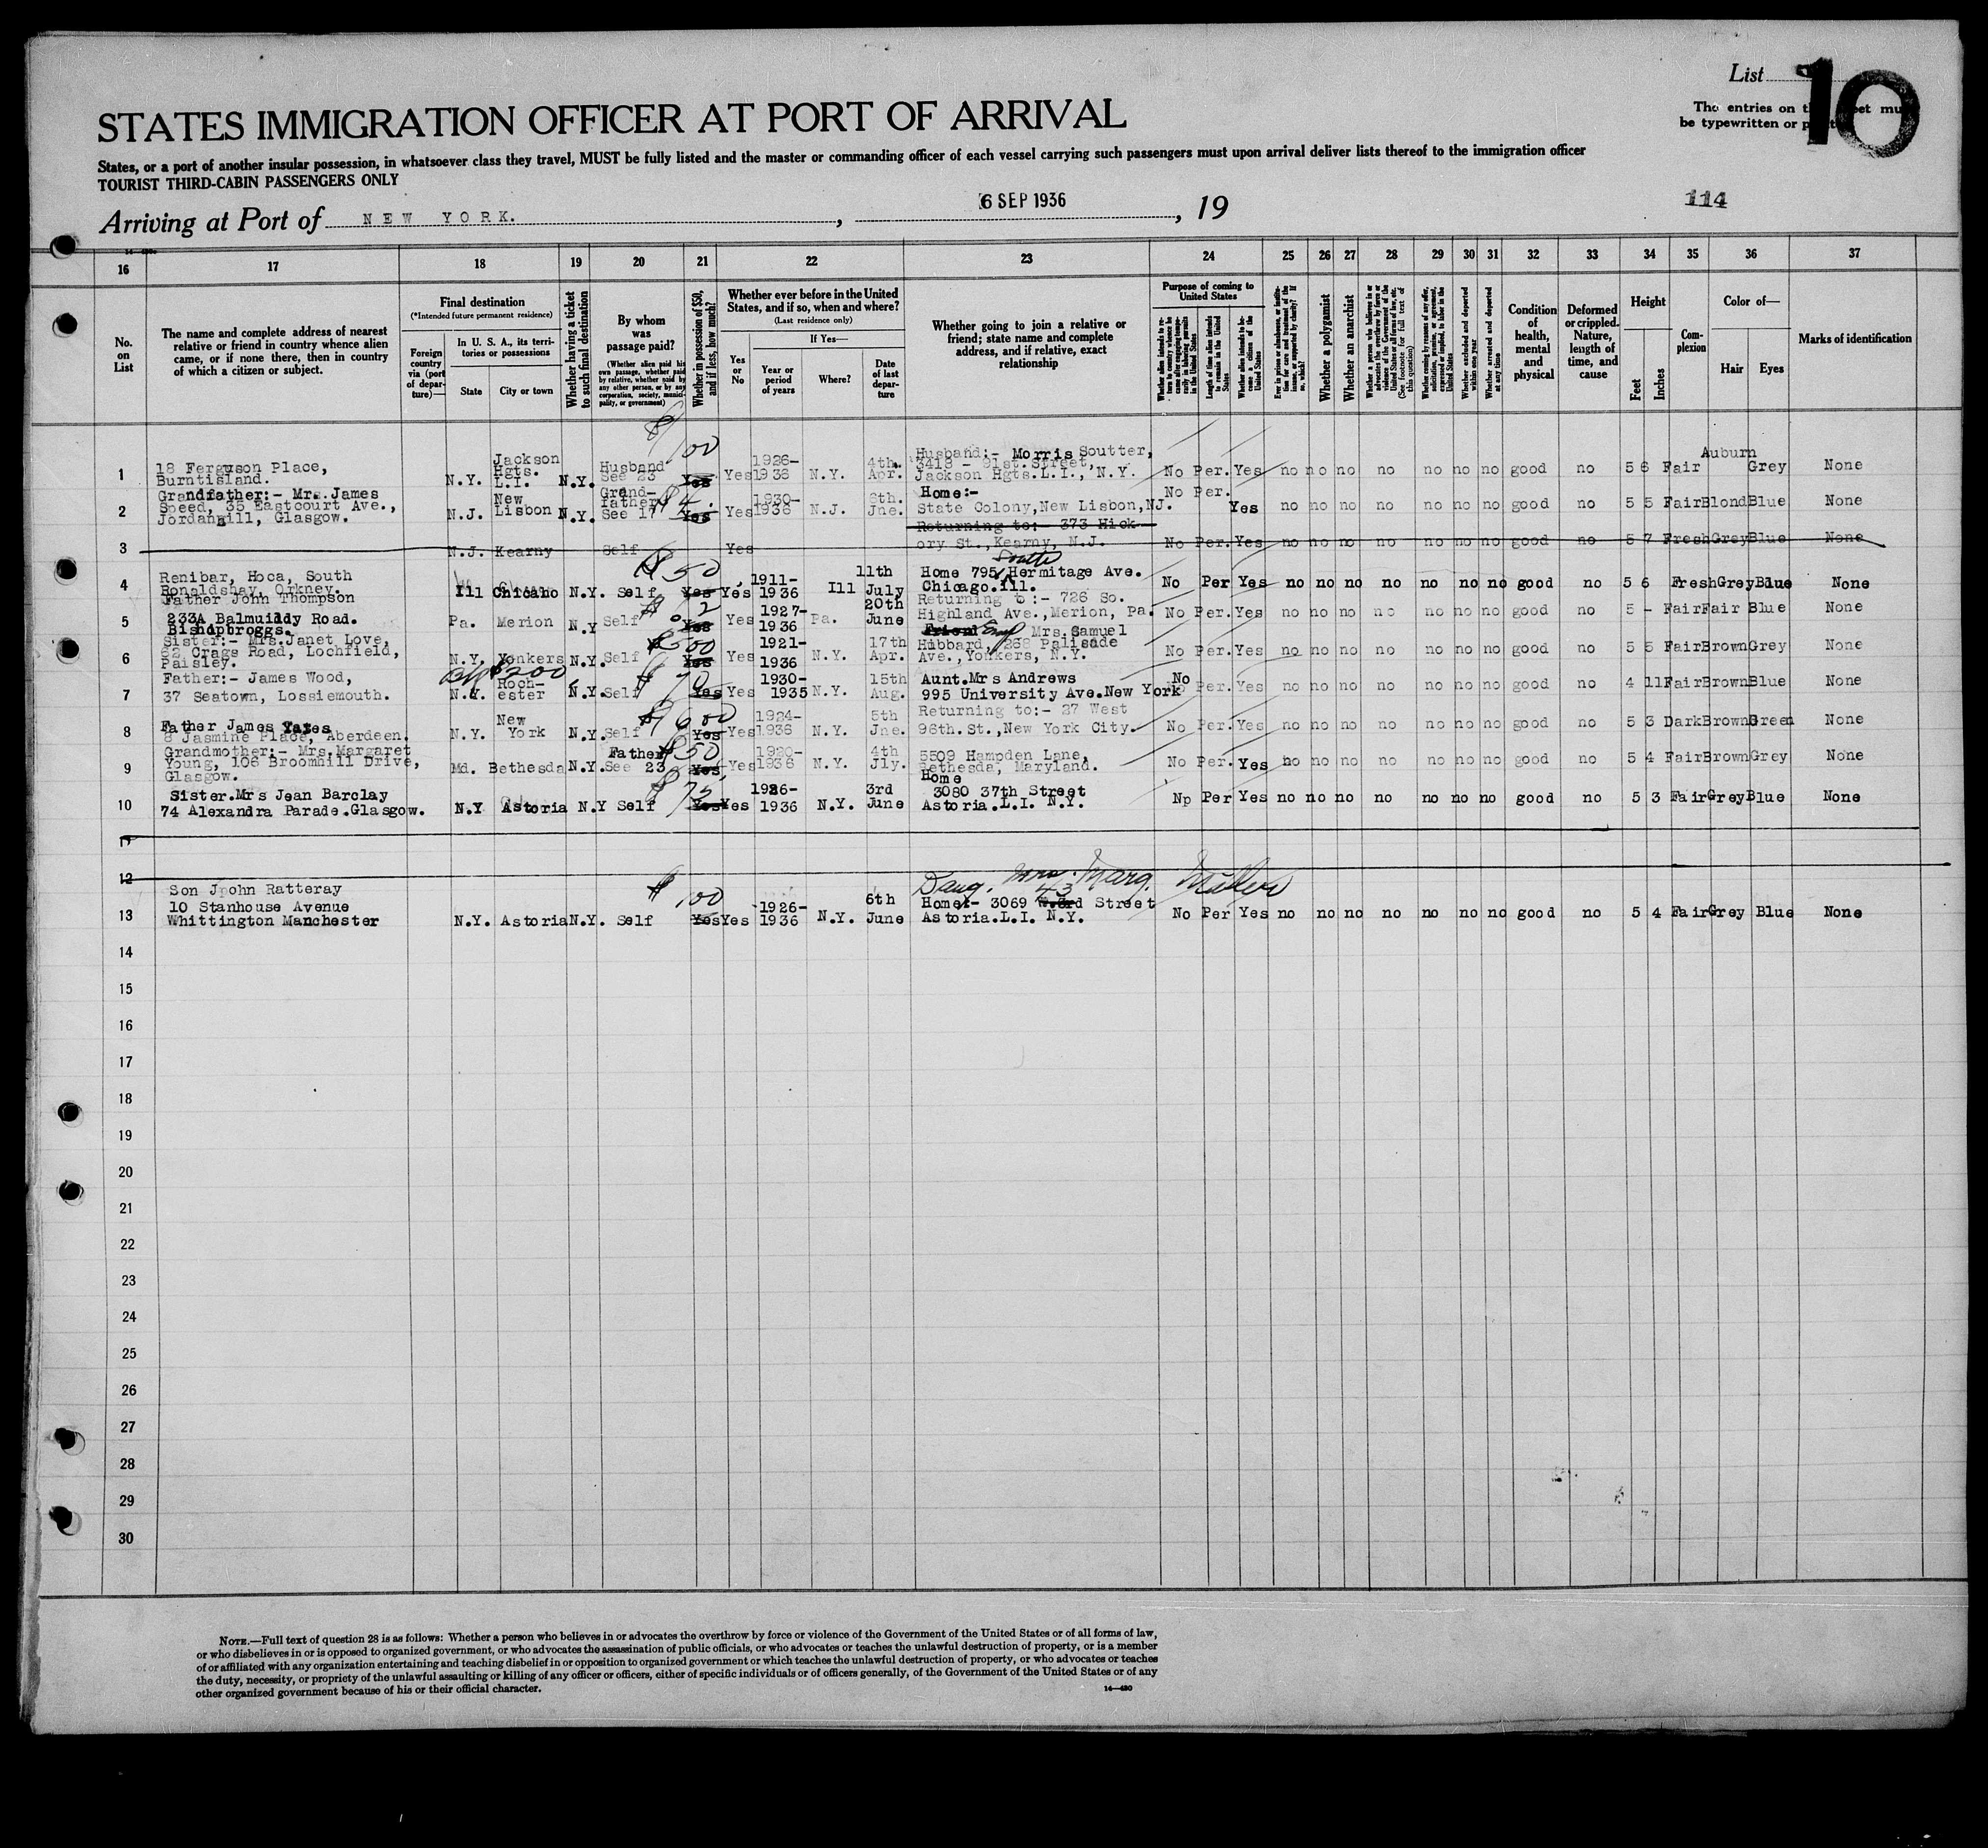 List 10
The entries on t et mu
be typewritten or p
STATES IMMIGRATION OFFICER AT PORT OF ARRIVAL
States, or a port of another insular possession, in whatsoever class they travel, MUST be fully listed and the master or commanding officer of each vessel carrying such passengers must upon arrival deliver lists thereof to the immigration officer
TOURIST THIRD-CABIN PASSENGERS ONLY
Arriving at Port of NEW YORK. , 6 SEP 1936 , 19
114
16 17 18 19 20 21 22 23 24 25 26 27 28 29 30 31 32 33 34 35 36 37
No. on List
The name and complete address of nearest relative or friend in country whence alien came, or if none there, then in country of which a citizen or subject.
Final destination
(*Intended future permanent residence)
Foreign country via (port of departure)—
In U. S. A., its territories or possessions
State City or town
Whether having a ticket to such final destination
By whom was passage paid?
(Whether alien paid his own passage, whether paid by relative, whether paid by any other person, or by any corporation, society, municipality, or government)
Whether in possession of $50, and if less, how much?
Whether ever before in the United States, and if so, when and where?
(Last residence only)
Yes or No
If Yes—
Year or period of years Where? Date of last departure
Whether going to join a relative or friend; state name and complete address, and if relative, exact relationship
Purpose of coming to United States
Length of time alien intends to remain in the United States
Whether alien intends to become a citizen of the United States
Whether a polygamist
Whether an anarchist
Whether excluded and deported within one year
Whether arrested and deported at any time
Condition of health, mental and physical
Deformed or crippled. Nature, length of time, and cause
Height
Feet Inches
Complexion
Color of—
Hair Eyes
Marks of identification
1 18 Ferguson Place, Burntisland. N.Y. Jackson Hgts. L.I. N.Y. Husband See 23 $100 Yes Yes 1926- 1936 N.Y. 4th. Apr. Husband:- Morris Soutter, 3418 - 91st. Street, Jackson Hgts.L.I., N.Y. No Per. Yes no no no no no no no good no 5 6 Fair Auburn Grey None
2 Grandfather:- Mr. James Speed, 35 Eastcourt Ave., Jordanhill, Glasgow. N.J. New Lisbon N.Y. Grand-father See 17 Yes Yes 1930- 1936 N.J. 6th. Jne. Home:- State Colony,New Lisbon,NJ. No Per. Yes no no no no no no no good no 5 5 Fair Blond Blue None
3 N.J. Kearny Self Yes Returning to:- 373 Hick ory St.,Kearny, N.J. No Per. Yes no no no no no no no good no 5 7 Fresh Grey Blue None
4 Renibar, Hoca, South Ronaldshay, Orkney. Ill Chicaho N.Y. Self $50 Yes Yes 1911- 1936 Ill 11th July Home 795 South Hermitage Ave. Chicago.Ill. No Per Yes no no no no no no no good no 5 6 Fresh Grey Blue None
5 Father John Thompson 233A Balmuildy Road. Bishopbroggs. Pa. Merion N.Y Self Yes Yes 1927- 1936 Pa. 20th June Returning to:- 726 So. Highland Ave.,Merion, Pa. No Per. Yes no no no no no no no good no 5 - Fair Fair Blue None
6 Sister:- Mrs.Janet Love, 62 Crags Road, Lochfield, Paisley. N.Y. Yonkers N.Y. Self Yes Yes 1921- 1936 N.Y. 17th Apr. Friend Mrs. Samuel Hibbard, 268 Palisade Ave.,Yonkers, N.Y. No Per. Yes no no no no no no no good no 5 5 Fair Brown Grey None
7 Father:- James Wood, 37 Seatown, Lossiemouth. $200 N.Y. Roch-ester N.Y. Self $70 Yes Yes 1930- 1935 N.Y. 15th Aug. Aunt.Mrs Andrews 995 University Ave.New York No Per. Yes no no no no no no no good no 4 11 Fair Brown Blue None
8 Father James Yates 8 Jasmine Place, Aberdeen. N.Y. New York N.Y. Self $1600 Yes Yes 1924- 1936 N.Y. 5th Jne. Returning to:- 27 West 96th.St.,New York City. No Per. Yes no no no no no no no good no 5 3 Dark Brown Green None
9 Grandmother:- Mrs.Margaret Young, 106 Broomhill Drive, Glasgow. Md. Bethesda N.Y. Father See 23 $50 Yes Yes 1920- 1936 N.Y. 4th Jly. 5509 Hampden Lane, Bethesda, Maryland. No Per. Yes no no no no no no no good no 5 4 Fair Brown Grey None
10 Sister.Mrs Jean Barclay 74 Alexandra Parade.Glasgow. N.Y Astoria N.Y Self $75 Yes Yes 1926- 1936 N.Y. 3rd June Home 3080 37th Street Astoria.L.I. N.Y. Np Per Yes no no no no no no no good no 5 3 Fair Grey Blue None
11
12
13 Son John Ratteray 10 Stanhouse Avenue Whittington Manchester N.Y. Astoria N.Y. Self $100 Yes Yes 1926- 1936 N.Y. 6th June Daug. Mrs. Marg. Muller Home:- 3069 43 Street Astoria.L.I. N.Y. No Per Yes no no no no no no no good no 5 4 Fair Grey Blue None
14
15
16
17
18
19
20
21
22
23
24
25
26
27
28
29
30
NOTE.—Full text of question 28 is as follows: Whether a person who believes in or advocates the overthrow by force or violence of the Government of the United States or of all forms of law,
or who disbelieves in or is opposed to organized government, or who advocates the assassination of public officials, or who advocates or teaches the unlawful destruction of property, or is a member
of or affiliated with any organization entertaining and teaching disbelief in or opposition to organized government or which teaches the unlawful destruction of property, or who advocates or teaches
the duty, necessity, or propriety of the unlawful assaulting or killing of any officer or officers, either of specific individuals or of officers generally, of the Government of the United States or of any
other organized government because of his or their official character.
14—430